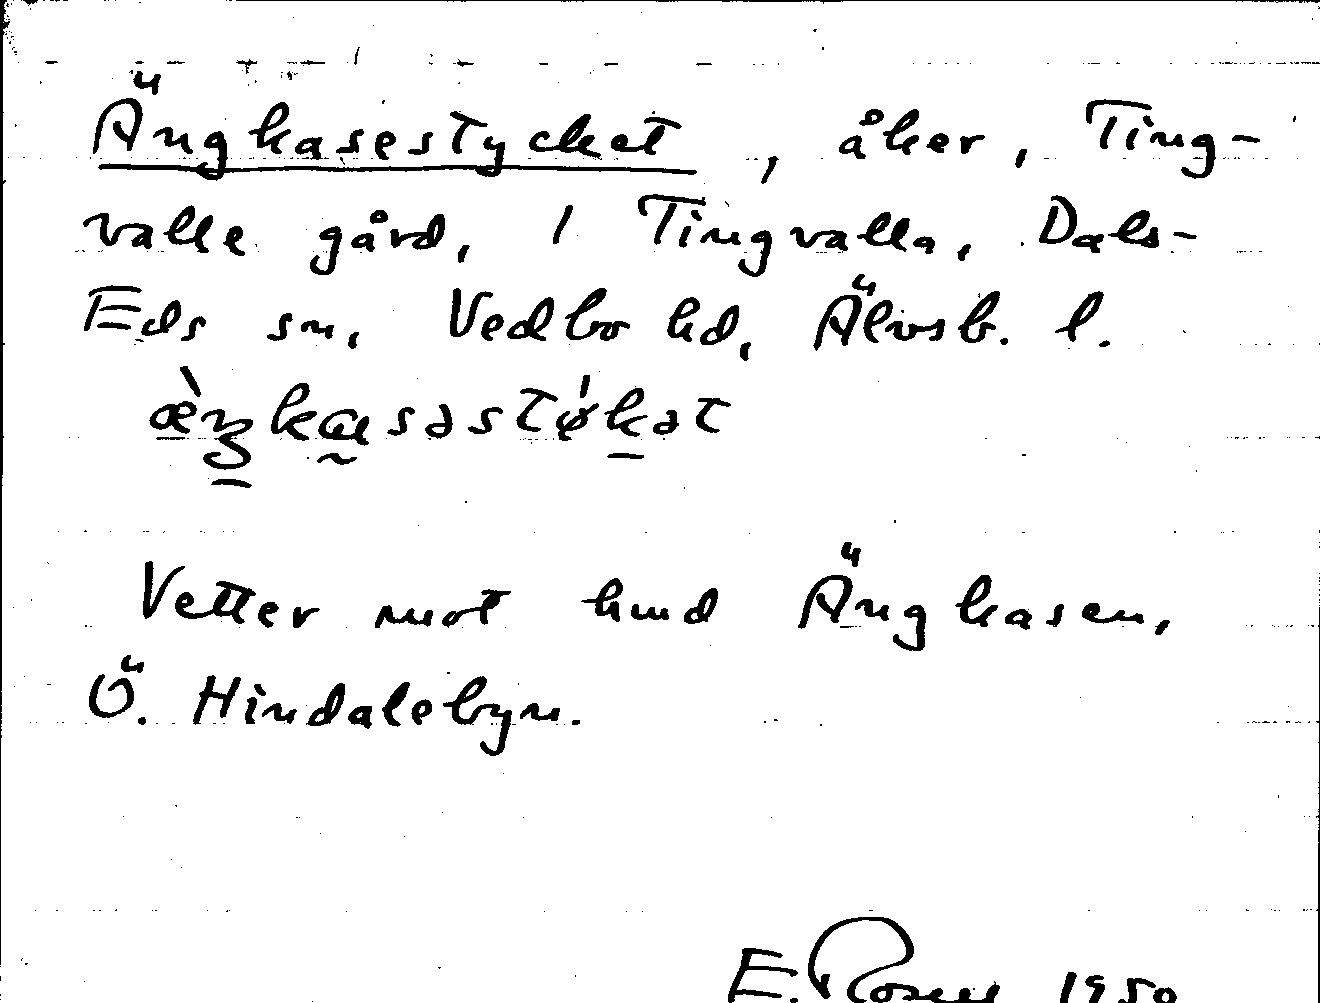 Ängkasestycket, åker, Ting-
valle gård, 1 Tingvalla, Dals-
Eds sn, Vedbo hd, Älvsb. l.
æ̀ŋkasəstǿkət
Vetter mot hmd Ängkasen,
Ö. Hindalebyn.
E. 1950